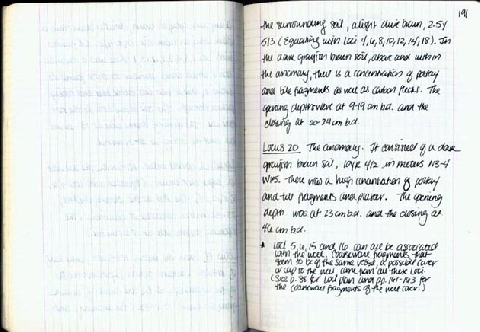 191
the surrounding soil, a light olive brown, 2.5Y
5/3 (Equating with loci 4, 6, 8, 10, 12, 14, 18). In
the dark grayish brown soil, above and within
the anomaly, there is a concentration of pottery
and tile fragments as well as carbon flecks. The
opening depths were at 9-19 cm b.d. and the
closing at cm b.d.
Locus 20 The anomaly. It consisted of a dark
grayish brown soil, 10YR 4/2, in meters N3-4
There was a high concentration of pottery
and tile fragments and plaster. The opening
depth was at 23 cm b.d. and the closing at
cm b.d.
* Loci 5, 15 and 16 can all be associated
with the well. Coarseware fragments that
seem to be of the same vessel, a possible cover
or cap to the well came from all these loci
(See p. for plan and pp. 141-143 for
the coarseware fragments of the well cover.)